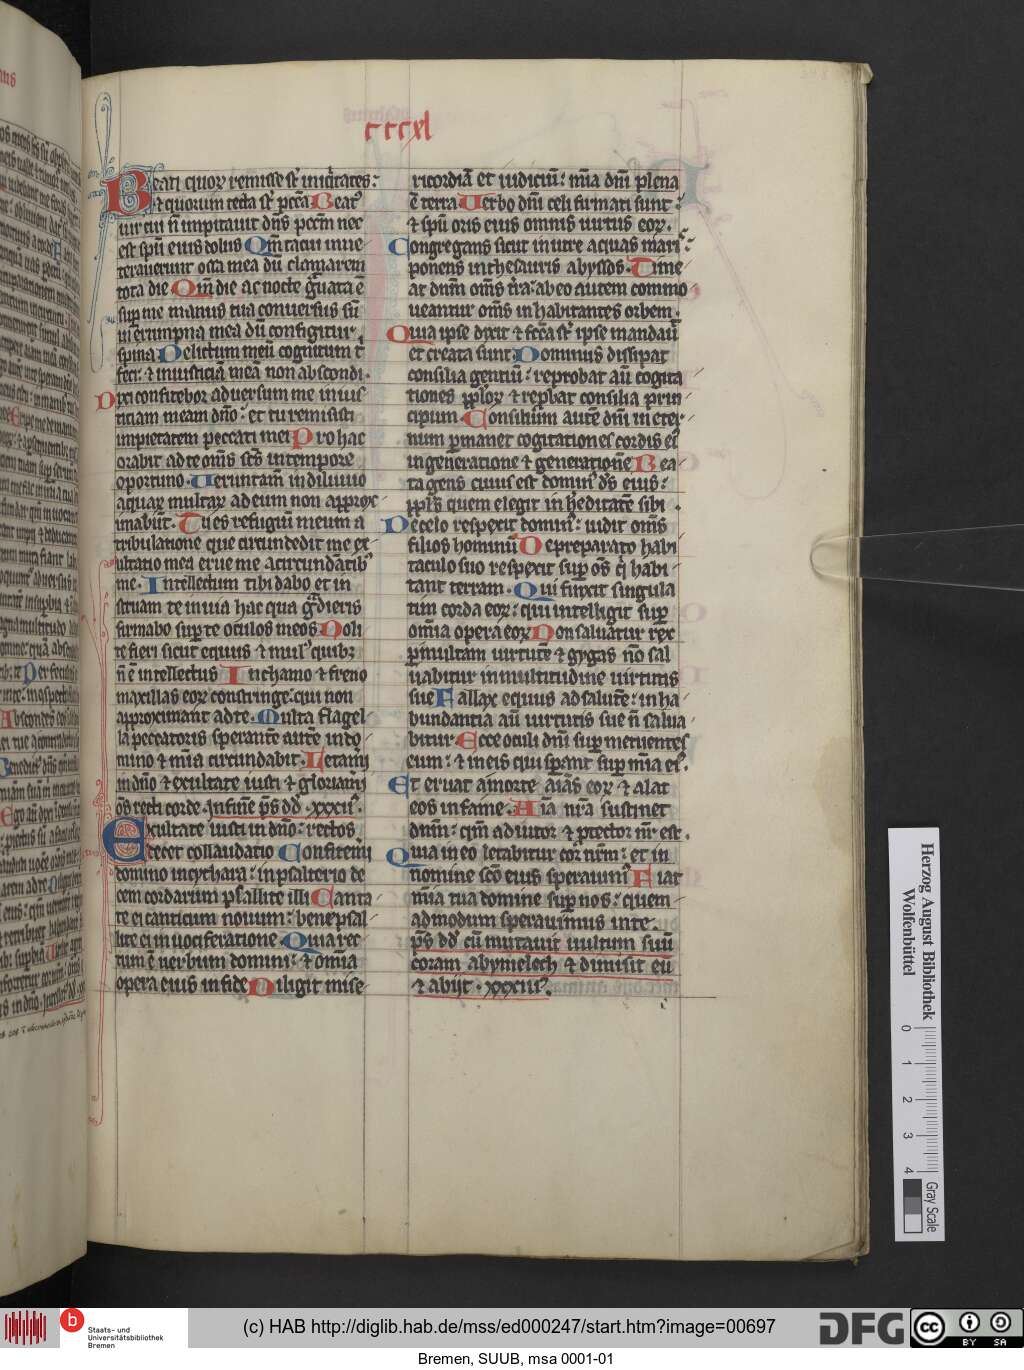 cccxl
Beati quoꝝ remisse sr̄ iniq̄tates:
⁊ quorum tecta sr̄ pctā Beat᷒
uir cui n̄ imputauit dn̄s pccm̄ nec
est spū eius dolus Qm̄ tacui inue
terauerunt ossa mea dū clamarem
tota die Qm̄ die ac nocte gͣuata ē
sup me manus tua conuersus sū
in erumpna mea dū configitur
spina Delictum meū cognitum t̄
feci: ⁊ iniusticiā meā non abscondi.
Dixi confitebor aduersum me inius
ticiam meam dn̄o: et tu remisisti
impietatem peccati mei Pro hac
orabit ad te om̄s sc̄s in tempore
oportuno. Ueruntam̄ in diluuio
aquaꝝ multaꝝ ad eum non approx
imabūt. Tu es refugiū meum a
tribulatione que circundedit me ex
ultatio mea erue me a circundātib᷒
me. Intellectum tibi dabo et in
struam te in uia hac qua gͣdieris
firmabo sup te oculos meos Noli
te fieri sicut equus ⁊ mul᷒ quibꝫ
n̄ ē intellectus In chamo ⁊ freno
maxillas eoꝝ constringe: qui non
approximant ad te. Multa flagel
la peccatoris sperantē autē in do
mino ⁊ mīa circundabit. Letam̄i
in dn̄o ⁊ exultate iusti ⁊ gloriam̄i
om̄s recti corde. In finē p̄s dd̄ xxxii᷒.
Exultate iusti in dn̄o: rectos
decet collaudatio Confitem̄i
domino in cythara: in psalterio de
cem cordarum psallite illi Canta
te ei canticum nouum: bene psal
lite ei in uociferatione. Quia rec
tum ē uerbum domini: ⁊ om̄ia
opera eius in fide Diligit mise
ricordiā et iudiciū: mīa dn̄i plena
ē terra Uerbo dn̄i celi firmati sunt:
⁊ spū oris eius omnis uirtus eoꝝ.
Congregans sicut in utre aquas mar᷒:
ponens in thesauris abyssos. Time
at dnm̄ om̄s tr̄a: ab eo autem commo
ueantur om̄s inhabitantes orbem.
Quia ipse dixit ⁊ fc̄ā sr̄ ipse mandauī
et creata sunt Dominus dissipat
consilia gentiū: reprobat aū cogita
tiones pploꝝ ⁊ repbat consilia prin
cipum. Consilium autē dn̄i in eter
num pmanet cogitationes cordis ei᷒
in generatione ⁊ generationē Bea
ta gens cuius est domin᷒ d̄s eius:
ppl̄s quem elegit in hereditatē sibi.
De celo respexit domin᷒: uidit om̄s
filios hominū De preparato habi
taculo suo respexit sup os̄ q̄ habi
tant terram. Qui finxit singula
tim corda eoꝝ: qui intelligit sup
om̄ia opera eoꝝ Non saluatur rex
p multam uirtutē ⁊ gygas nō sal
uabitur in multitudine uirtutis
sue Fallax equus ad salutē: in ha
bundantia aū uirtutis sue n̄ salua
bitur. Ecce oculi dn̄i sup metuentes
eum: ⁊ in eis qui spant sup mīa ei᷒.
Et eruat a morte aīas eoꝝ ⁊ alat
eos in fame. Aīa nr̄a sustinet
dnm̄: qm̄ adiutor ⁊ ptector nr̄ est.
Quia in eo letabitur cor nrm̄: et in
nomine scō eius sperauim᷒ Fiat
mīa tua domine sup nos: quem
admodum sperauimus in te.
p̄s dd̄ cū mutauit uultum suū
coram abymelech ⁊ dimisit eū
⁊ abijt. xxxiii᷒.
Herzog August Bibliothek
Wolfenbüttel
0 1 2 3 4
Gray Scale
b
Staats- und
Universitätsbibliothek
Bremen
(c) HAB http://diglib.hab.de/mss/ed000247/start.htm?image=00697
DFG
cc
BY SA
Bremen, SUUB, msa 0001-01